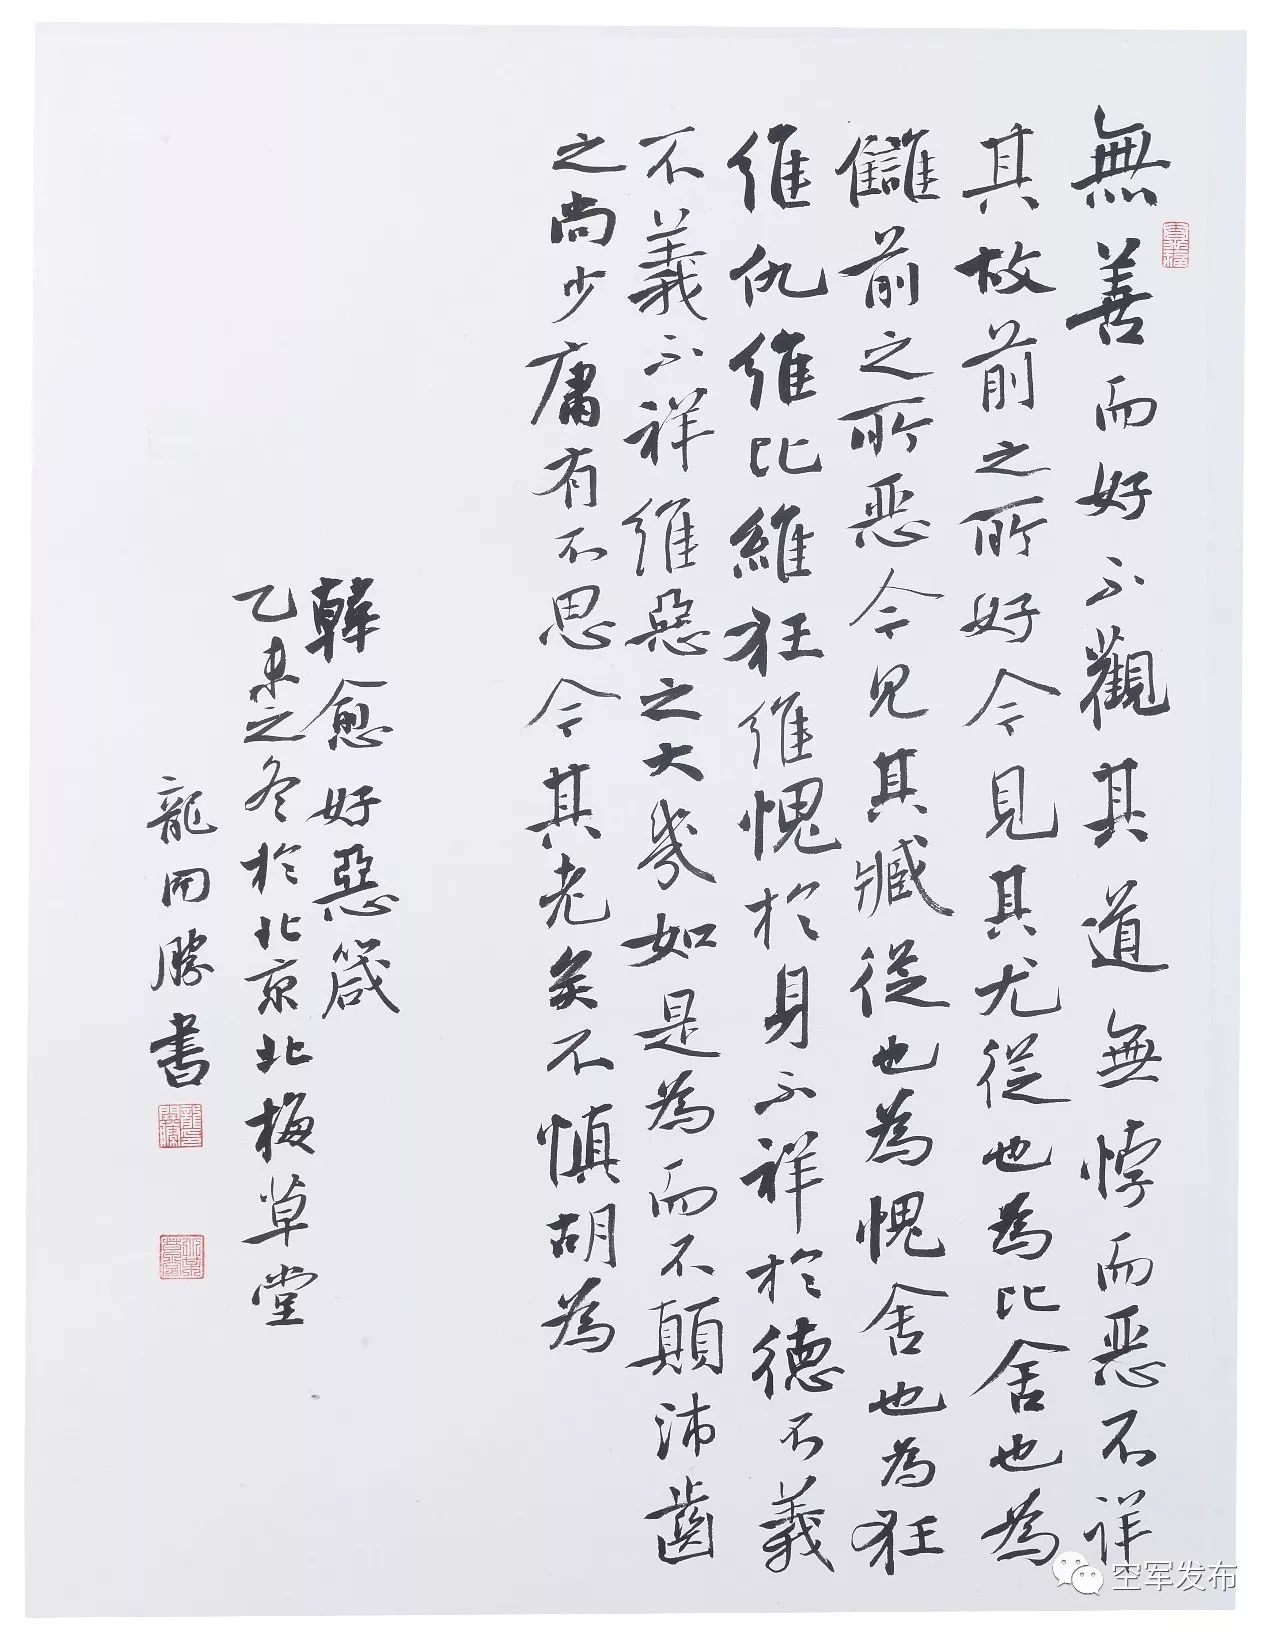 無善而好不觀其道無悖而惡不詳
其故前之所好今見其尤從也為比舍也為
讎前之所恶今見其臧從也為愧舍也為狂
維仇維比維狂維愧於身不祥於德不義
不義不祥維惡之大幾如是為而不顛沛齒
之尚少庸有不思今其老矣不慎胡為
韓愈好惡箴
乙未之冬於北京北梅草堂
龍開勝書
空军发布